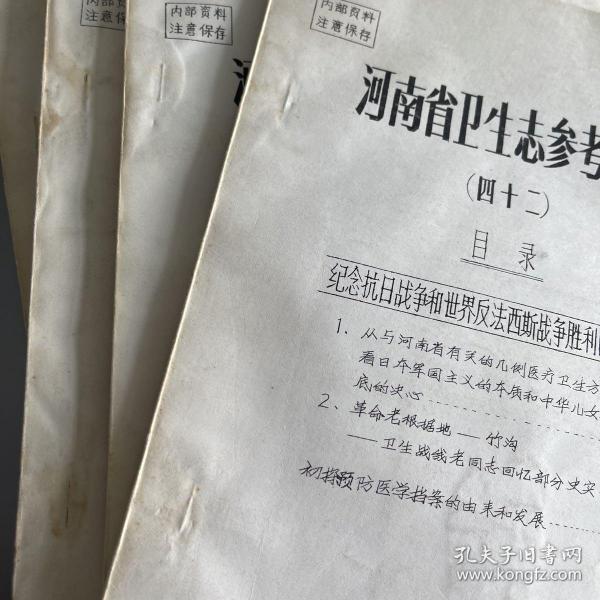 内部资料
注意保存
内部资料
注意保存
内部资料
注意保存
河南省卫生志参考
(四十二)
目录
纪念抗日战争和世界反法西斯战争胜利
1、从与河南省有关的几例医疗卫生方
看日本军国主义的本质和中华儿女
底的决心
2、革命老根据地——竹沟
——卫生战线老同志回忆部分史实
初探预防医学档案的由来和发展
孔夫子旧书网
www.kongfz.com